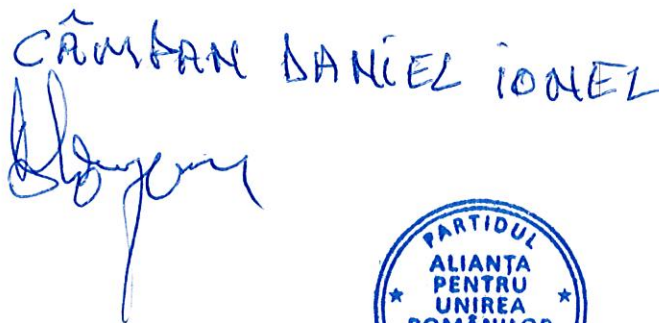 CÂMPAN DANIEL IONEL
PARTIDUL
ALIANȚA
PENTRU
UNIREA
ROMÂNILOR